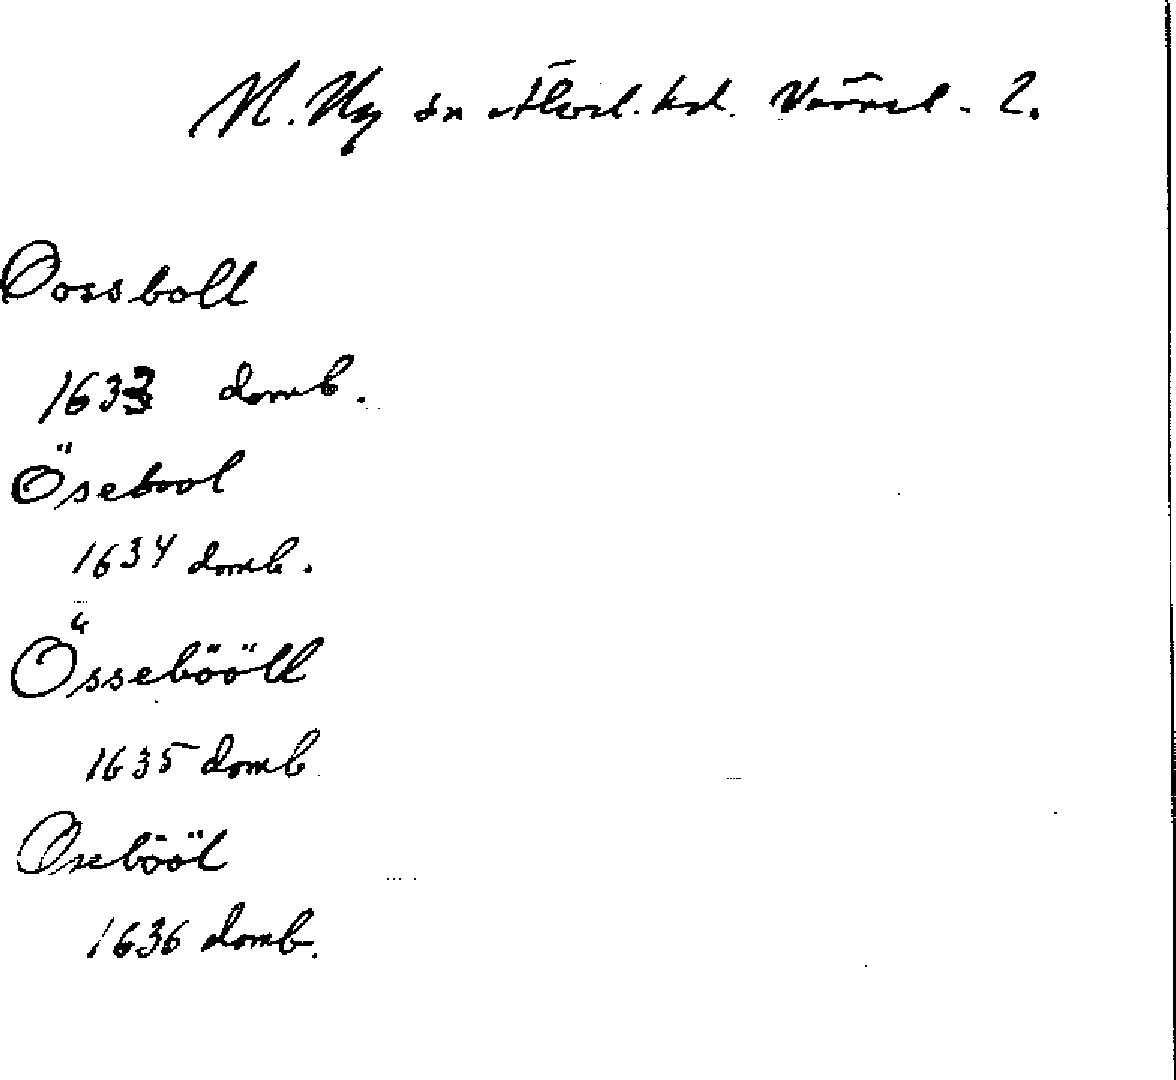 N. Ny sn Älvd. hd. Värml. 2.
Oossboll
1633 domb.
Ösebool
1634 domb.
Össebööll
1635 domb
Osebööl
1636 domb.